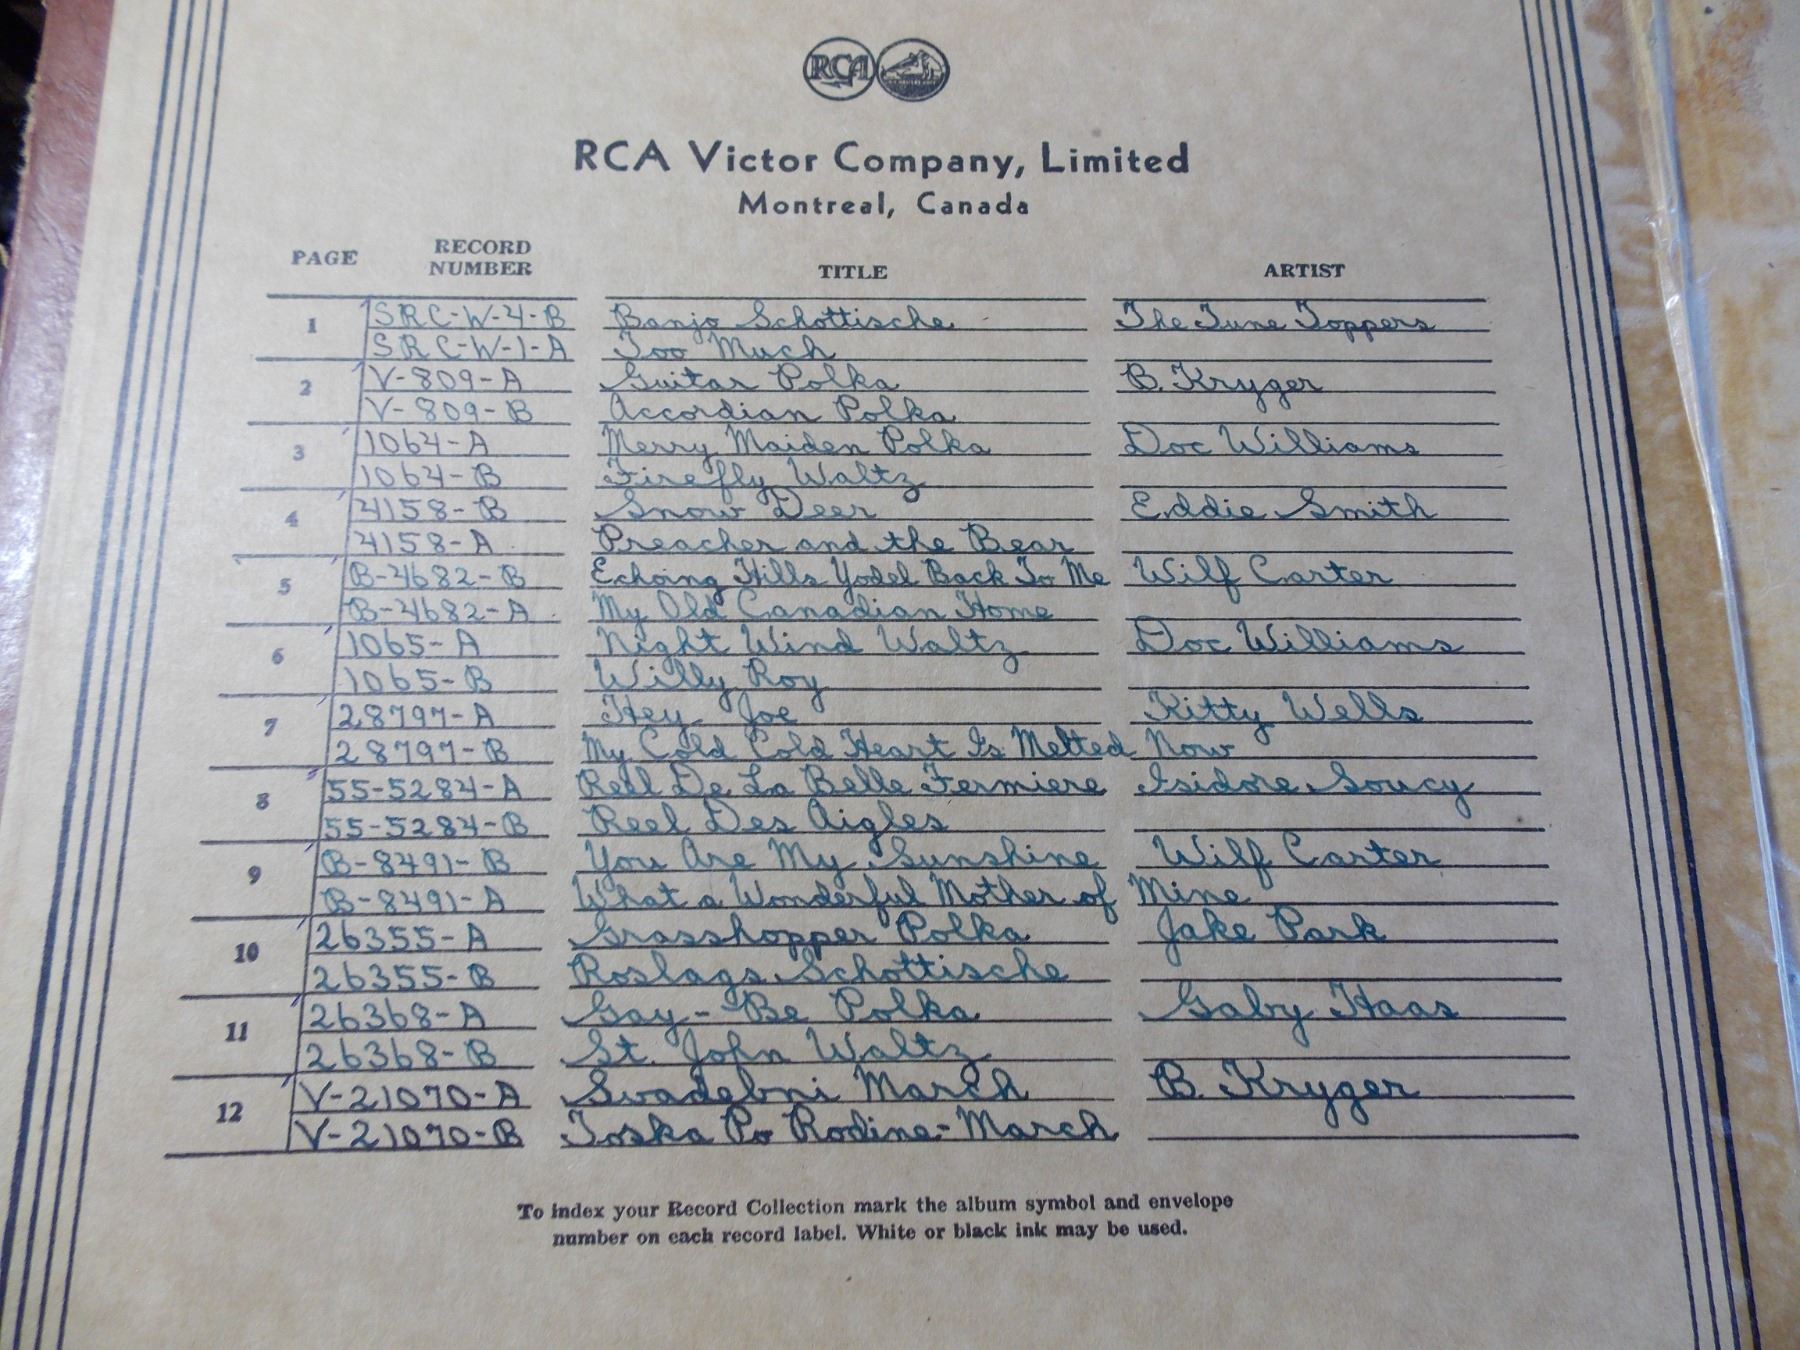 RCA
RCA Victor Company, Limited
Montreal, Canada
PAGE RECORD NUMBER TITLE ARTIST
1 SRC-W-4-B Banjo Schottische The Tune Toppers
SRC-W-1-A Too Much
2 V-809-A Guitar Polka B. Kryger
V-809-B Accordian Polka
3 1064-A Merry Maiden Polka Doc Williams
1064-B Firefly Waltz
4 4158-B Snow Deer Eddie Smith
4158-A Preacher and the Bear
5 B-4682-B Echoing Hills Yodel Back To Me Wilf Carter
B-4682-A My Old Canadian Home
6 1065-A Night Wind Waltz Doc Williams
1065-B Willy Roy
7 28797-A Hey Joe Kitty Wells
28797-B My Cold Cold Heart Is Melted Now
8 55-5284-A Reel De La Belle Fermiere Isidore Soucy
55-5284-B Reel Des Aigles
9 B-8491-B You Are My Sunshine Wilf Carter
B-8491-A What a Wonderful Mother of Mine
10 26355-A Grasshopper Polka Jake Park
26355-B Roslags Schottische
11 26368-A Gay-Be Polka Gaby Haas
26368-B St. John Waltz
12 V-21070-A Svadebni March B. Kryger
V-21070-B Toska Po Rodine-March
To index your Record Collection mark the album symbol and envelope
number on each record label. White or black ink may be used.